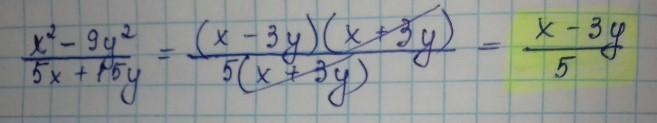 (x² - 9y²)/(5x + 15y) = ((x - 3y)(x + 3y))/(5(x + 3y)) = (x - 3y)/5